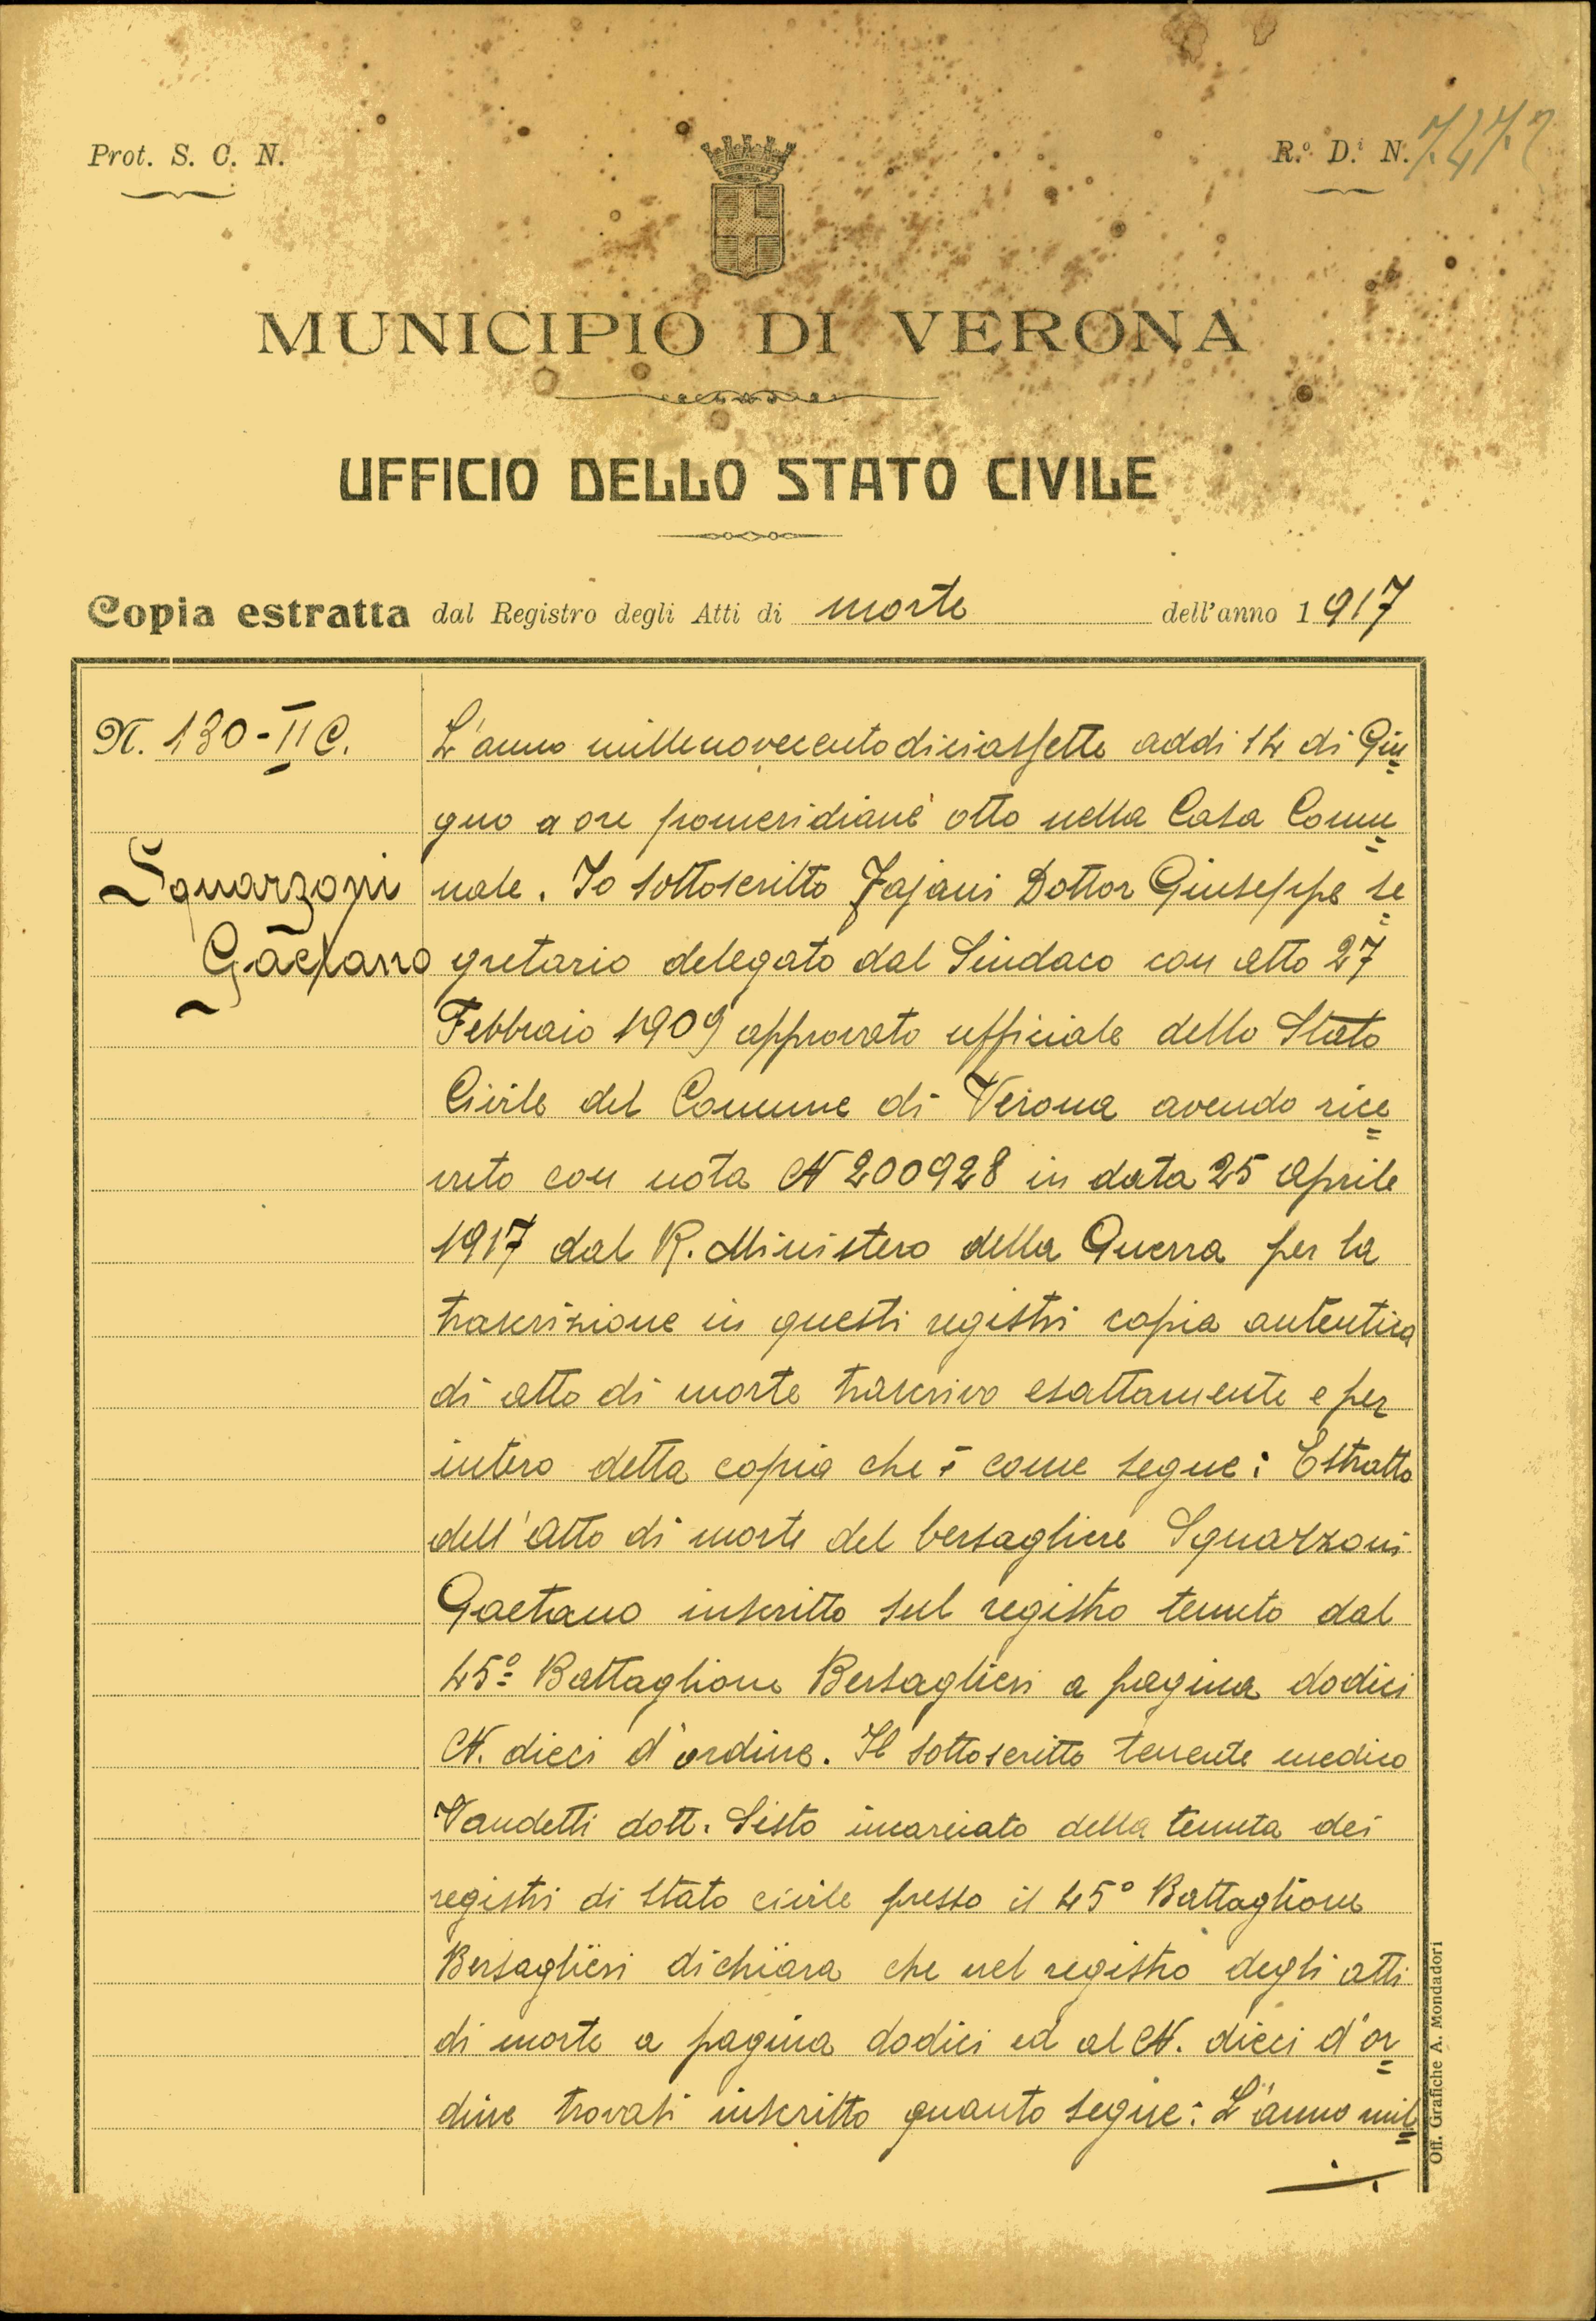 Prot. S. C. N.
R.º D.i N. 7472
MUNICIPIO DI VERONA
UFFICIO DELLO STATO CIVILE
Copia estratta dal Registro degli Atti di morte dell'anno 1917
N. 130-II C.
Squarzoni
Gaetano
L'anno millenovecentodiciassette addi 14 di Giu=
gno a ore pomeridiane otto nella Casa Comu=
nale. Io sottoscritto Fajani Dottor Giuseppe se=
gretario delegato dal Sindaco con atto 27
Febbraio 1909 approvato ufficiale dello Stato
Civile del Comune di Verona avendo rice=
vuto con nota N 200928 in data 25 Aprile
1917 dal R. Ministero della Guerra per la
trascrizione in questi registri copia autentica
di atto di morte trascrivo esattamente e per
intero detta copia che è come segue: Estratto
dell'atto di morte del bersagliere Squarzoni
Gaetano inscritto sul registro tenuto dal
45º Battaglione Bersaglieri a pagina dodici
N. dieci d'ordine. Il sottoscritto tenente medico
Vandetti dott. Sisto incaricato della tenuta dei
registri di stato civile presso il 45º Battaglione
Bersaglieri dichiara che nel registro degli atti
di morte a pagina dodici ed al N. dieci d'or=
dine trovasi inscritto quanto segue: L'anno mil=
./.
Off. Grafiche A. Mondadori